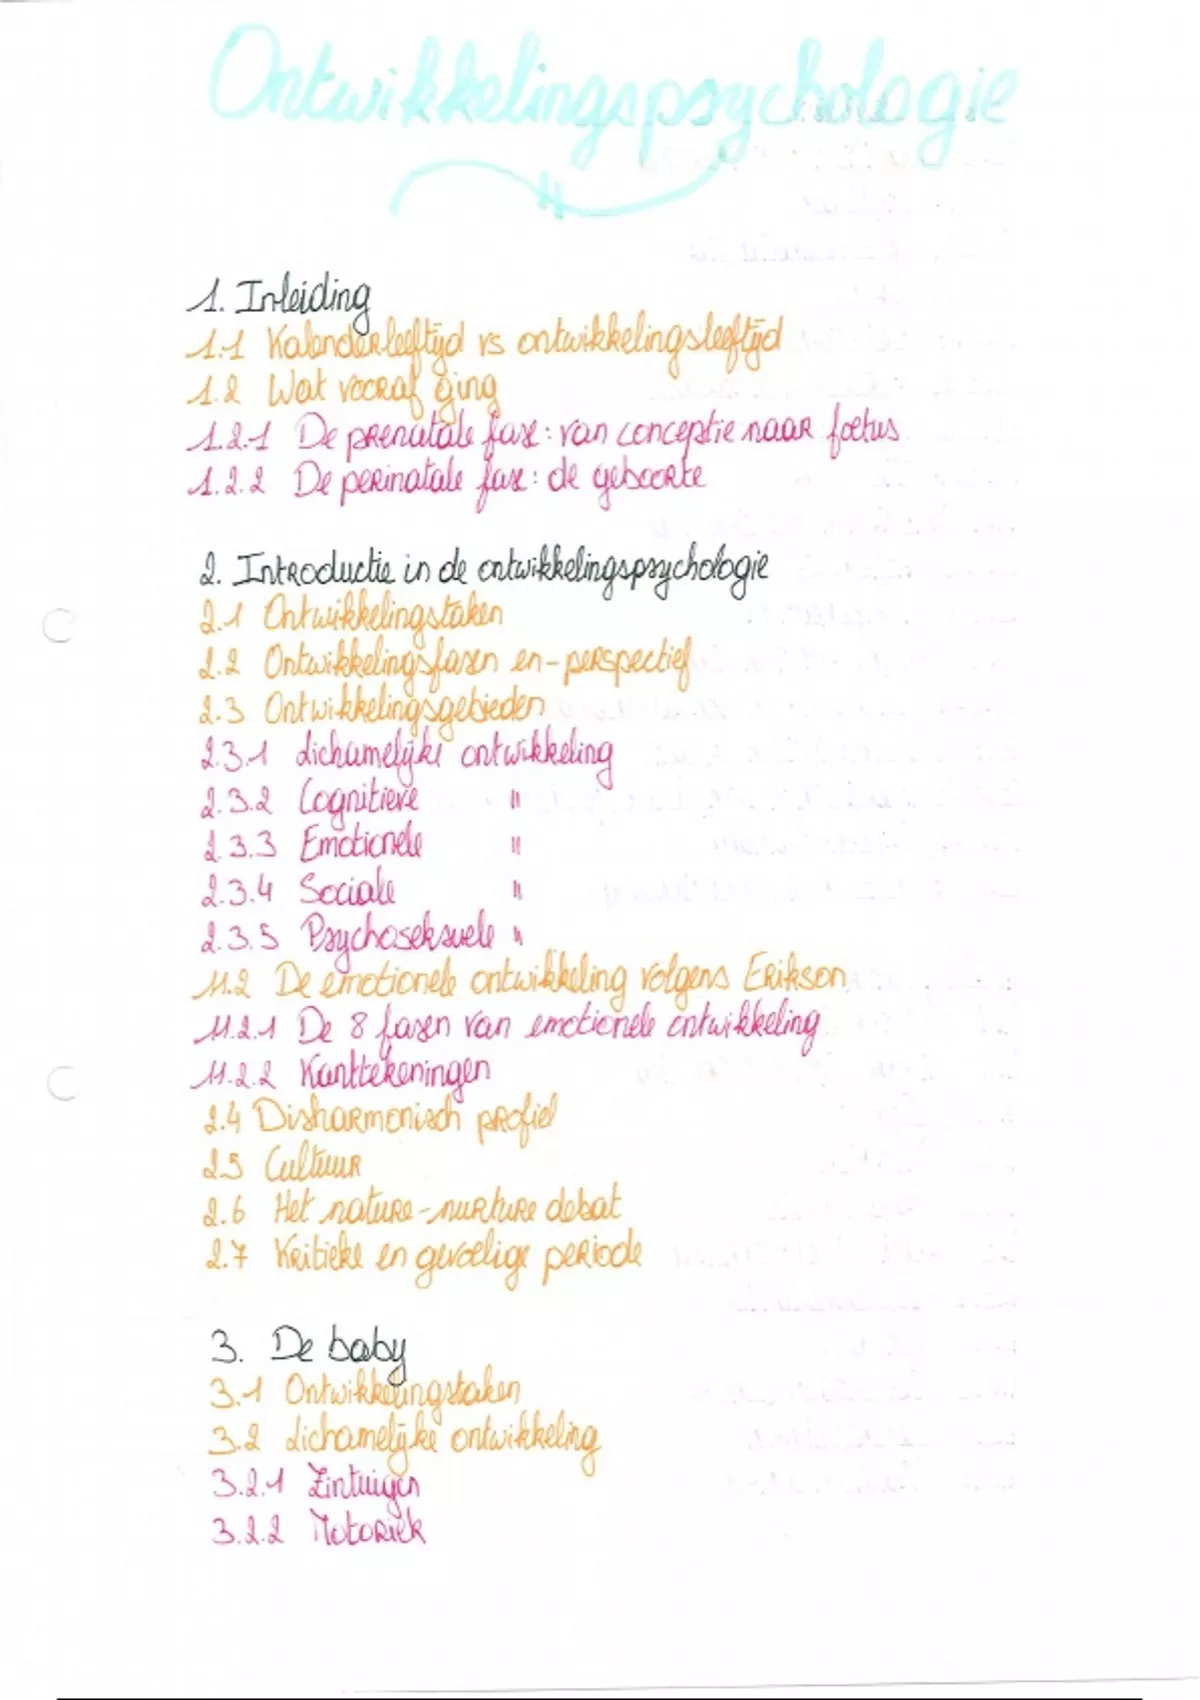 Ontwikkelingspsychologie
1. Inleiding
1.1 Kalenderleeftijd vs ontwikkelingsleeftijd
1.2 Wat vooraf ging
1.2.1 De prenatale fase: van conceptie naar foetus
1.2.2 De perinatale fase: de geboorte
2. Introductie in de ontwikkelingspsychologie
2.1 Ontwikkelingstaken
2.2 Ontwikkelingsfasen en-perspectief
2.3 Ontwikkelingsgebieden
2.3.1 Lichamelijke ontwikkeling
2.3.2 Cognitieve "
2.3.3 Emotionele "
2.3.4 Sociale "
2.3.5 Psychoseksuele "
11.2 De emotionele ontwikkeling volgens Erikson
11.2.1 De 8 fasen van emotionele ontwikkeling
11.2.2 Kanttekeningen
2.4 Disharmonisch profiel
2.5 Cultuur
2.6 Het nature-nurture debat
2.7 Kritieke en gevoelige periode
3. De baby
3.1 Ontwikkelingstaken
3.2 Lichamelijke ontwikkeling
3.2.1 Zintuigen
3.2.2 Motoriek